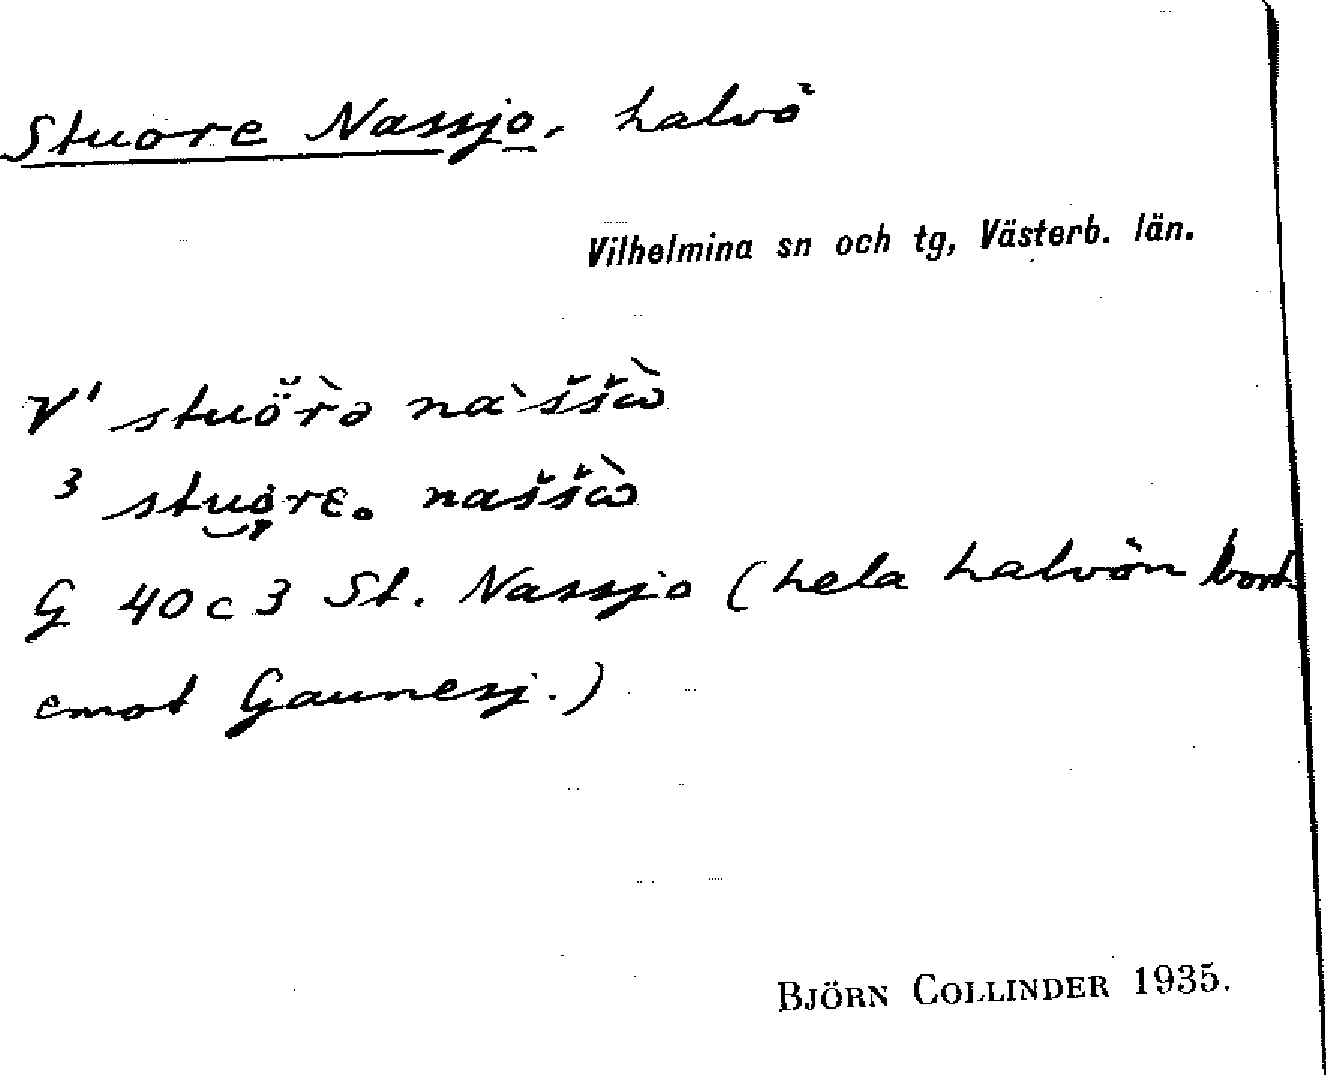 Stuore Nassjo, halvö
Vilhelmina sn och tg, Västerb. län.
V¹ stuö̆rə̀ na`ššὼ
³ stuo̯re. naššὼ
G 40 c 3 St. Nassjo (hela halvön bort
emot Gaunesj.)
BJÖRN COLLINDER 1935.